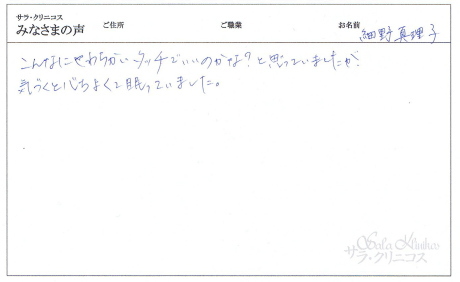 サラ・クリニコス
みなさまの声 ご住所 ご職業 お名前 細野真理子
こんなにやわらかいタッチでいいのかな?と思っていましたが
気づくと心ちよくて眠っていました。
Sala Klinikos
サラ・クリニコス